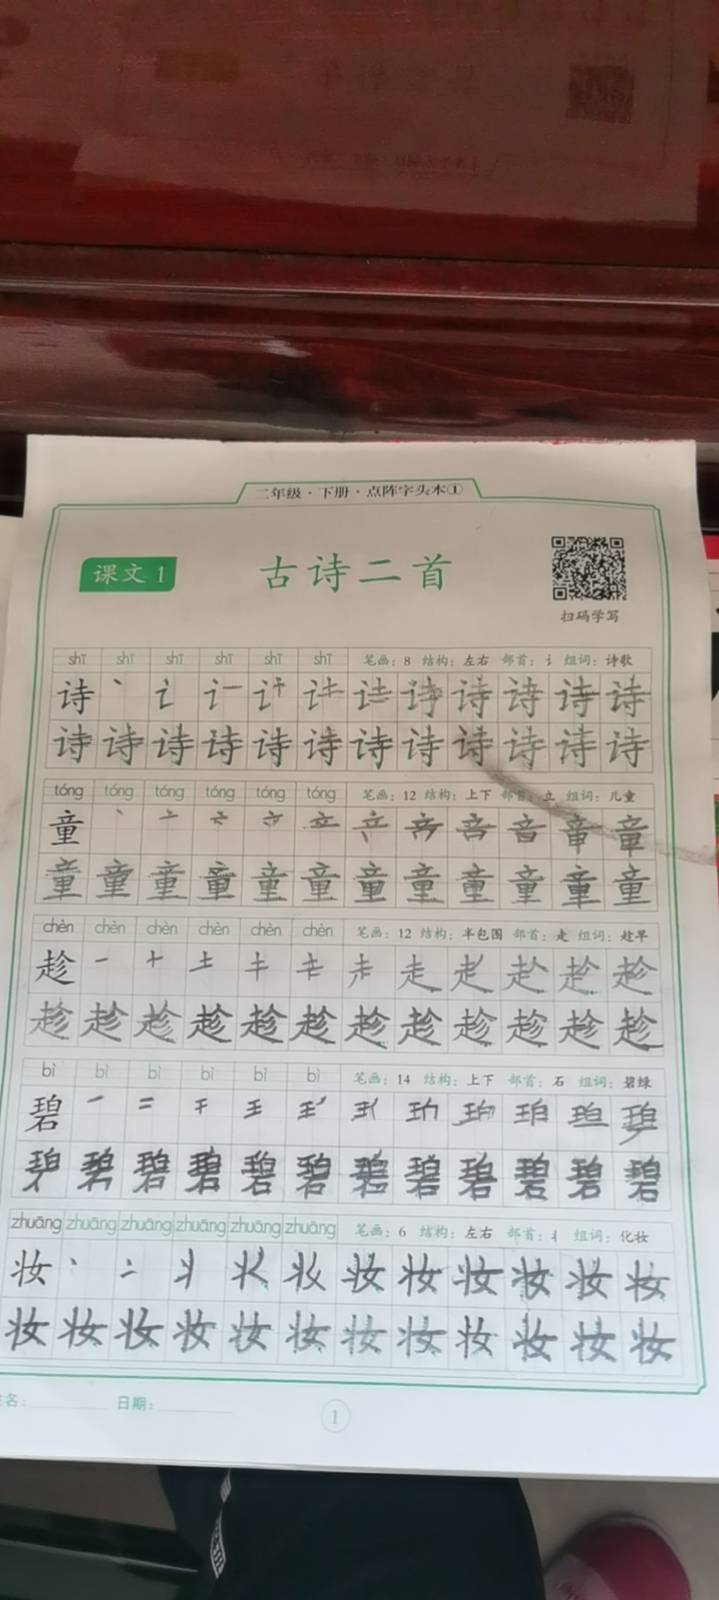 二年级·下册·点阵字头本①
课文 1
古诗二首
扫码学写
shī shī shī shī shī shī 笔画：8 结构：左右 部首：讠 组词：诗歌
诗 丶 讠 诗 诗 诗
诗 诗 诗 诗 诗 诗 诗 诗 诗 诗 诗 诗
tóng tóng tóng tóng tóng tóng 笔画：12 结构：上下 部首：立 组词：儿童
童 丶 亠 立 产 音 音 童 童
童 童 童 童 童 童 童 童 童 童 童 童
chèn chèn chèn chèn chèn chèn 笔画：12 结构：半包围 部首：走 组词：趁早
趁 一 十 土 走 趁 趁
趁 趁 趁 趁 趁 趁 趁 趁 趁 趁 趁 趁
bì bì bì bì bì bì 笔画：14 结构：上下 部首：石 组词：碧绿
碧 一 二 王 珀
碧 碧 碧 碧 碧 碧 碧 碧 碧 碧 碧
zhuāng zhuāng zhuāng zhuāng zhuāng zhuāng 笔画：6 结构：左右 部首：丬 组词：化妆
妆 丶 冫 丬 妆 妆 妆 妆 妆 妆
妆 妆 妆 妆 妆 妆 妆 妆 妆 妆 妆 妆
名： 日期：
1